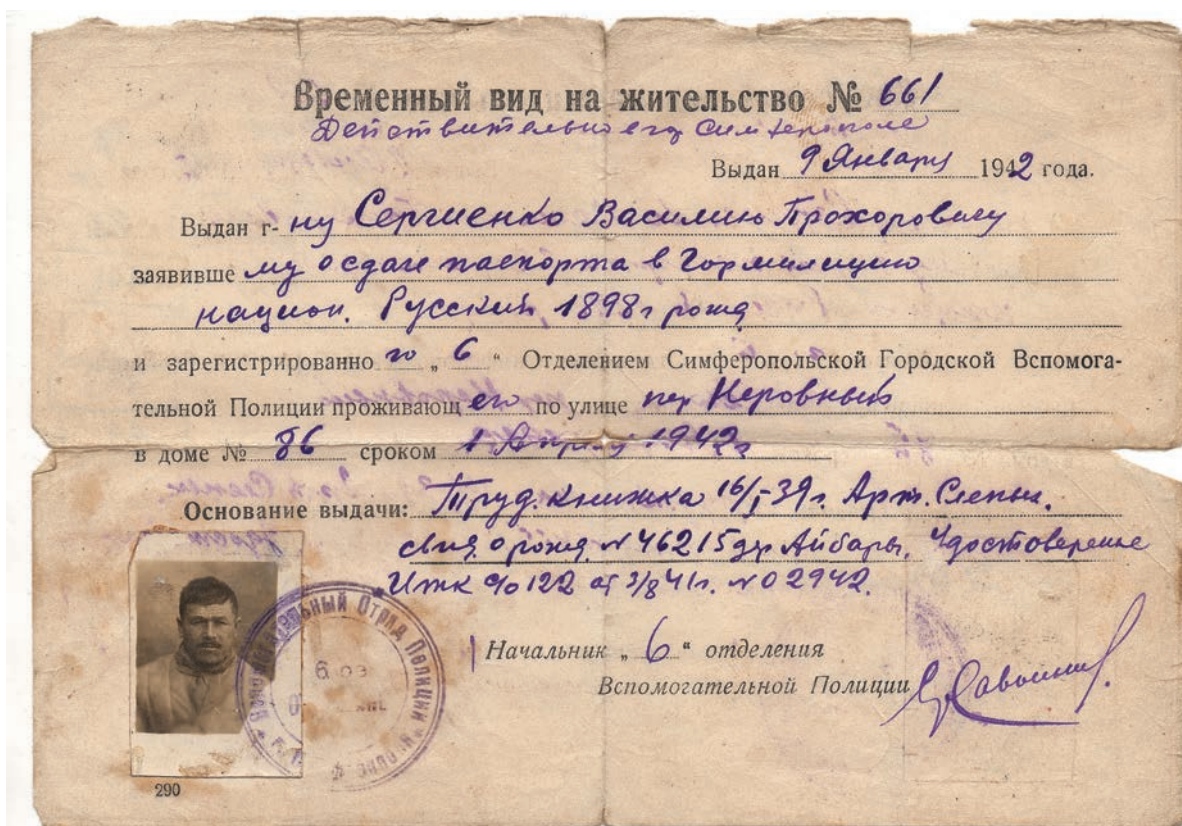 Временный вид на жительство № 661
Действительно в гор Симферополе
Выдан 9 Января 1942 года.
Выдан г- ну Сергиенко Василию Прохоровичу
заявивше му о сдаче паспорта в Гормилицию
национ. Русский 1898 г рожд
и зарегистрированно го „ 6 “ Отделением Симферопольской Городской Вспомога-
тельной Полиции проживающ его по улице пер Неровный
в доме № 86 сроком 1 Апреля 1942 г
Основание выдачи: Труд. книжка 16/I-39 г. Арт.
свид. о рожд. № 46215 Айбары, Удостоверение
122 от 3/8 41 г. № 02942.
Начальник „ 6 “ отделения
Вспомогательной Полиции
Отряд Полиции
290